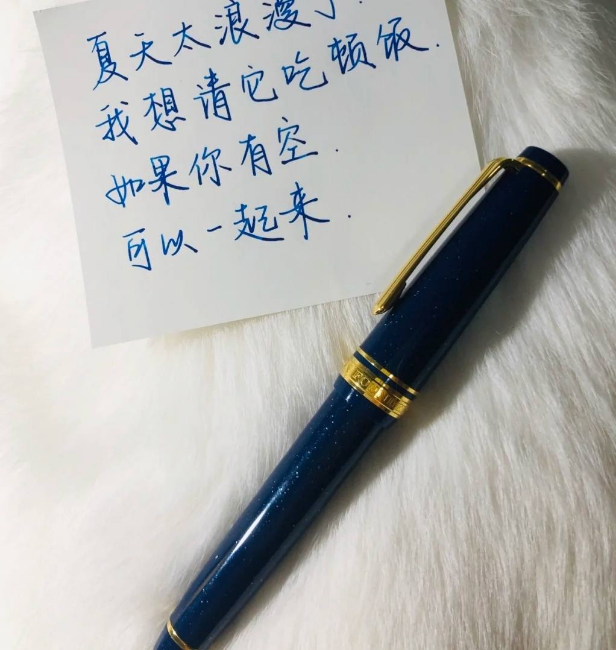 夏天太浪漫了.
我想请它吃顿饭.
如果你有空.
可以一起来.